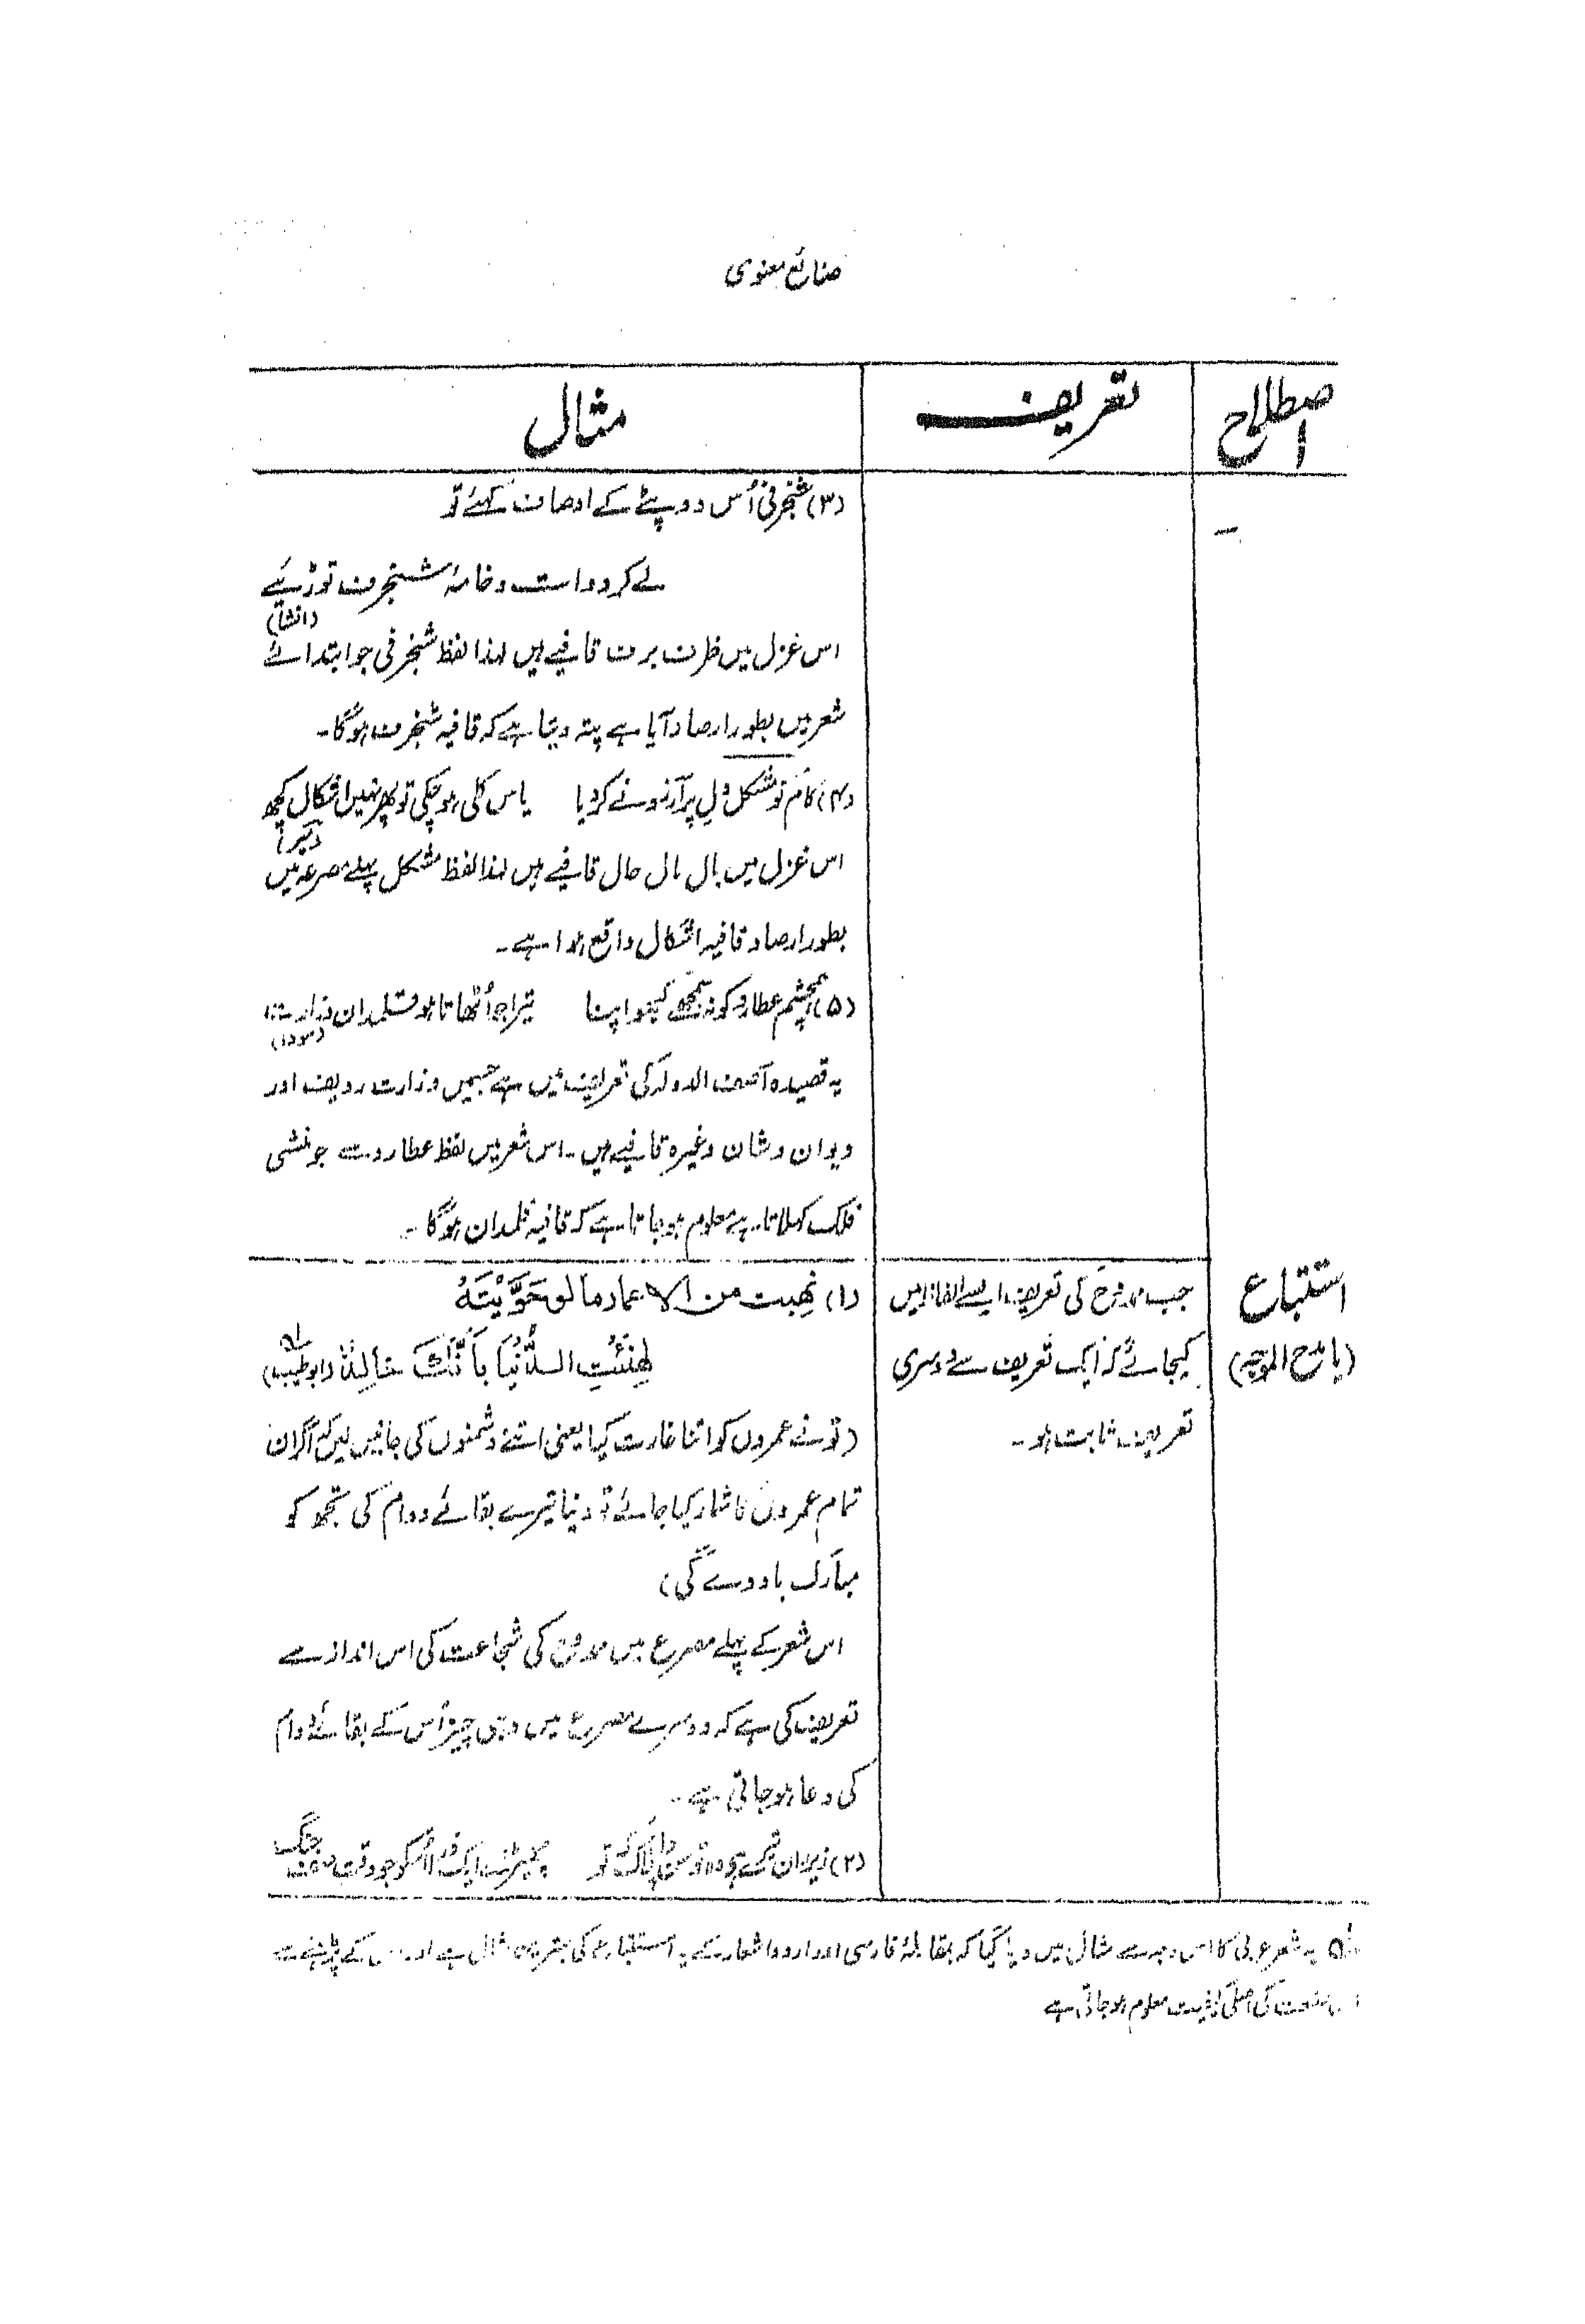 صنائع معنوی
اصطلاح
تعریف
مثال
(۳) شنجرفی اُس دوپٹے کے اوصاف کہئے تو
لے کر دوات و خامۂ شنجرف توڑیئے
(انشا)
اس غزل میں ظرف برف قافیے ہیں لہذا لفظ شنجرفی جو ابتدائے
شعر میں بطور ارصاد آیا ہے پتہ دیتا ہے کہ قافیہ شنجرف ہوگا۔
(۴) کام تو مشکل دل پر آرزو نے کر دیا یاس کلی ہو چکی تو پھر نہیں اشکال کچھ
(میر)
اس غزل میں بال مال حال قافیے ہیں لہذا لفظ مشکل پہلے مصرعہ میں
بطور ارصاد قافیہ اشکال واقع ہوا ہے۔
(۵) ہمچشم عطارد کو نہ سمجھے کبھو اپنا تیرا جو اُٹھاتا ہو قلمدان وزارت
(سودا)
یہ قصیدہ آصف الدولہ کی تعریف میں ہے جسمیں وزارت ردیف اور
دیوان و شان وغیرہ قافیے ہیں۔ اس شعر میں لفظ عطارد سے جو منشی
فلک کہلاتا ہے معلوم ہو جاتا ہے کہ قافیہ قلمدان ہوگا۔
استتباع
(یا مدح الموجہ)
جب ممدوح کی تعریف ایسے الفاظ میں
کیجائے کہ ایک تعریف سے دوسری
تعریف ثابت ہو۔
(۱) نھبت من الاعمار مالو حَوَّیْتَهُ
لِھُنِّئَتِ الدُّنْیَا بِاَنَّکَ خَالِدٌ (ابوطیب)
(تو نے عمروں کو اتنا غارت کیا یعنی اتنے دشمنوں کی جانیں لیں کہ اگر ان
تمام عمروں کا شمار کیا جائے تو دنیا تیرے بقائے دوام کی تجھ کو
مبارک باد دے گی)
اس شعر کے پہلے مصرع میں ممدوح کی شجاعت کی اس انداز سے
تعریف کی ہے کہ دوسرے مصرع میں وہی چیز اُس کے بقائے دوام
کی دعا ہو جاتی ہے۔
(۲) زیر ران تیرے جو وہ توسن
جنگ
۱؎ یہ شعر عربی کا اس وجہ سے مثال میں دیا گیا کہ بمقابلۂ فارسی اور اردو اشعار کے یہ استتباع کی بہترین مثال ہے اور اس کے پڑھنے سے
اس صنعت کی اصلی کیفیت معلوم ہو جاتی ہے